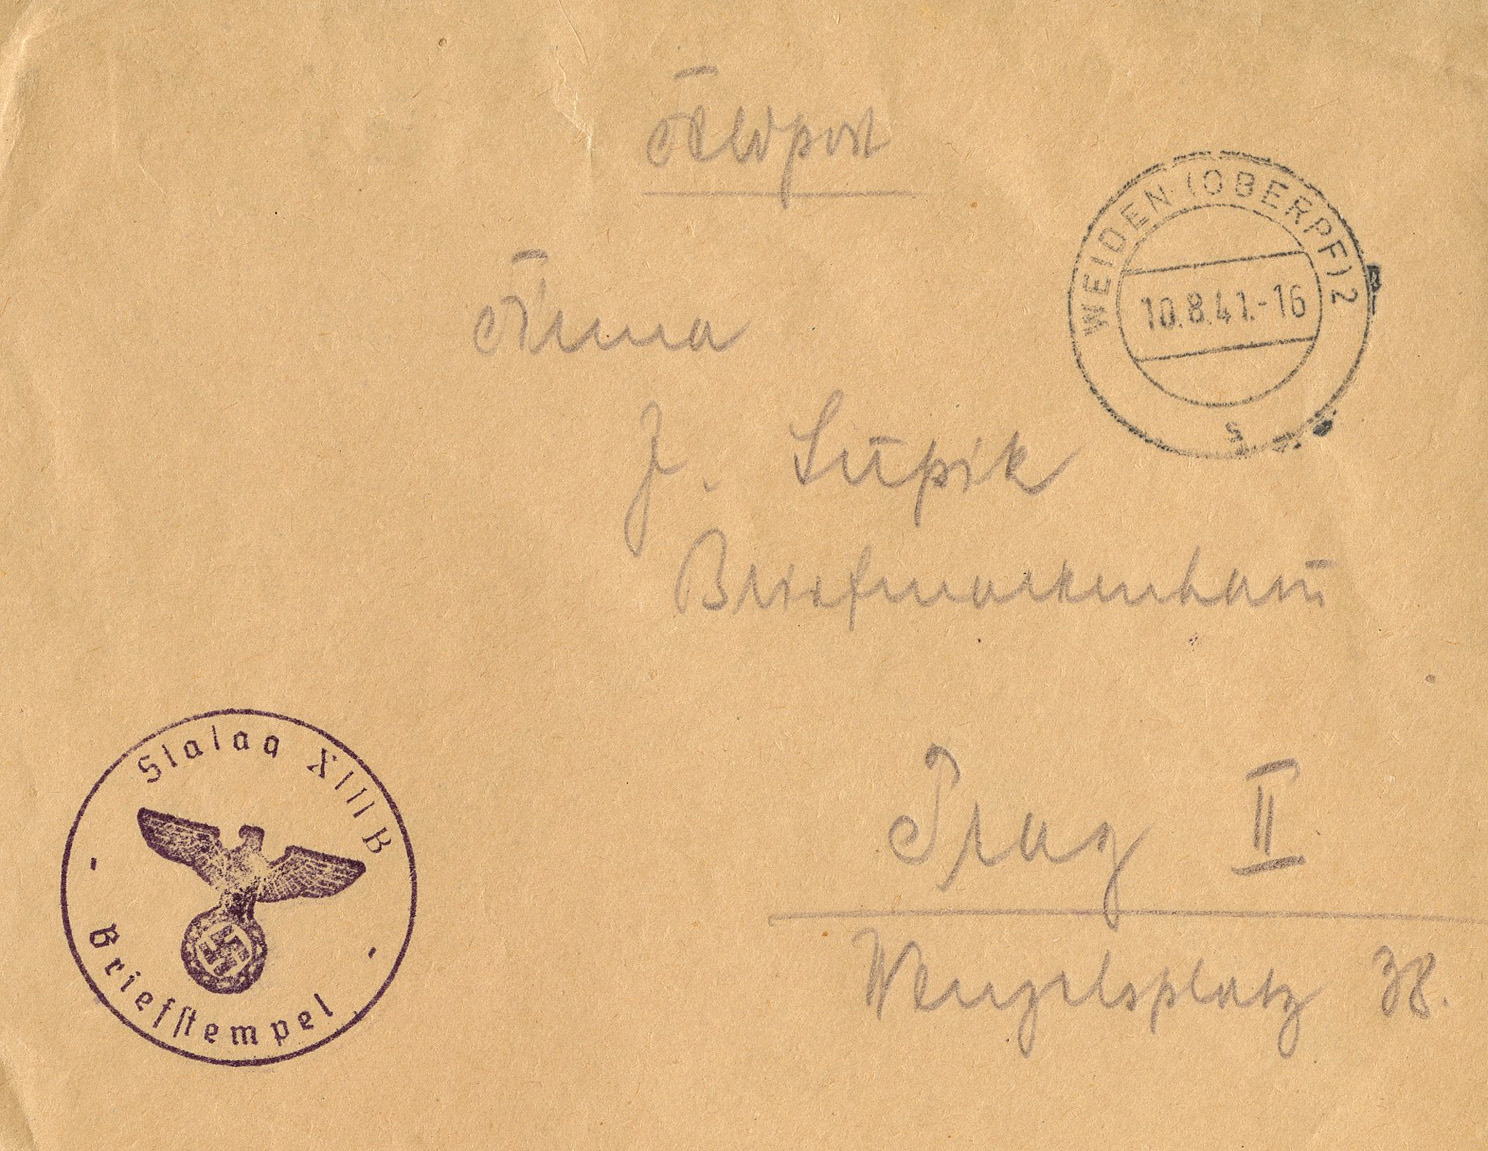 Feldpost
WEIDEN (OBERPF) 2
10.8.41.-16
s
Firma
J. Supik
Briefmarkenhaus
Prag II
Wenzelsplatz 38.
Stalag XIII B
- Briefstempel -